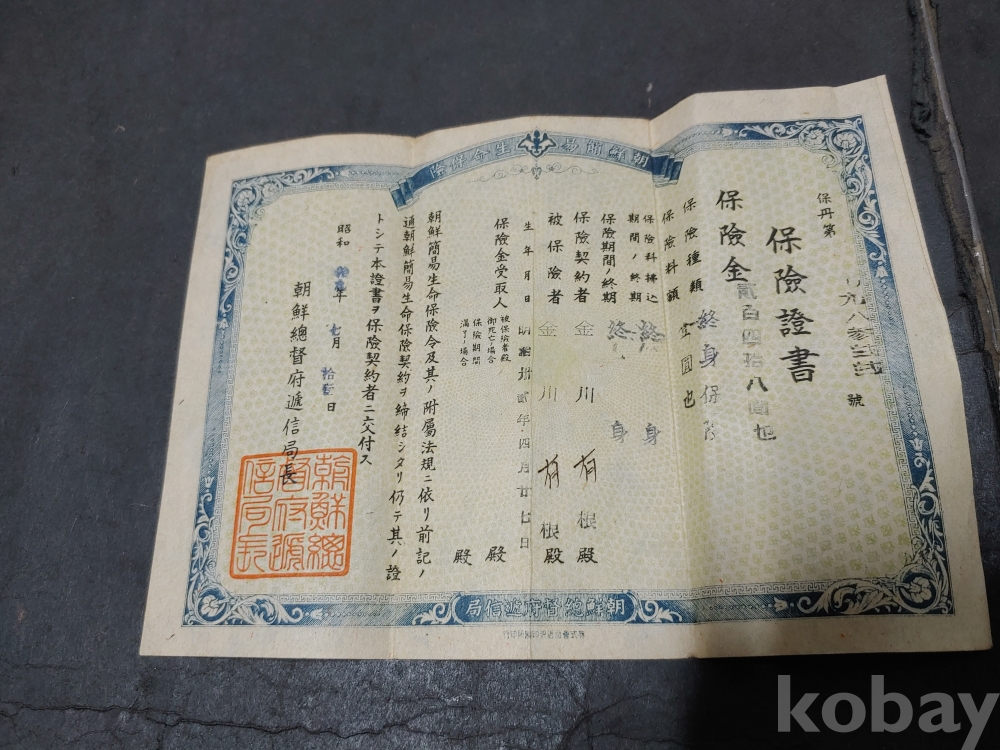 朝鮮簡易生命保險
保丹第
號
保險證書
保險金 貳百四拾八圓也
保險種類 終身保險
保險料額 壹圓也
保險料拂込期間ノ終期 終身
保險期間ノ終期 終身
保險契約者 金川有根殿
被保險者 金川有根殿
生年月日 明治卅貳年四月廿七日
保險金受取人
被保險者殿御死亡ノ場合 殿
保險期間滿了ノ場合 殿
朝鮮簡易生命保險令及其ノ附屬法規ニ依リ前記ノ
通朝鮮簡易生命保險契約ヲ締結シタリ仍テ其ノ證
トシテ本證書ヲ保險契約者ニ交付ス
昭和 年七月 日
朝鮮總督府遞信局長
朝鮮總督府遞信局長
朝鮮總督府遞信局
kobay